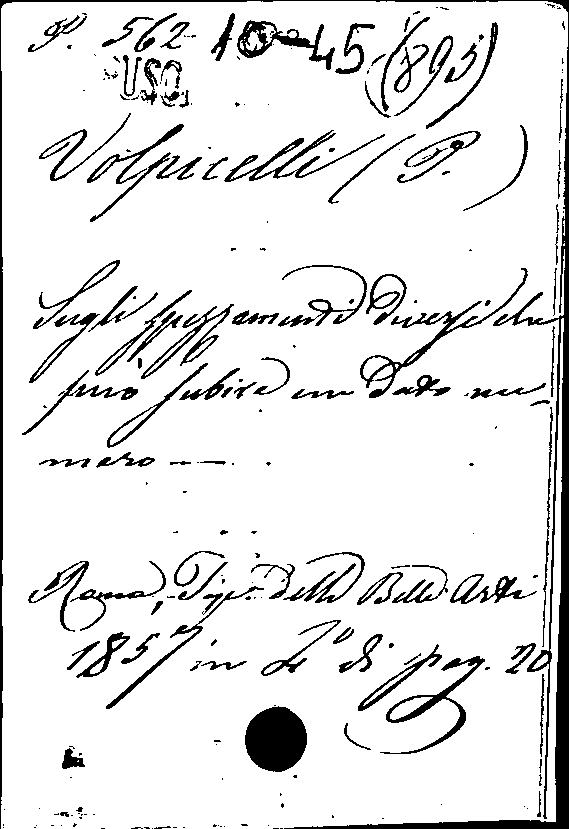 P. 562 10-45 (895)
USO.
Volpicelli (P.)
Sugli spezzamenti diversi che
può subire un dato nu-
mero —
Roma, Tip. delle Belle Arti
1857 in 4º di pag. 20